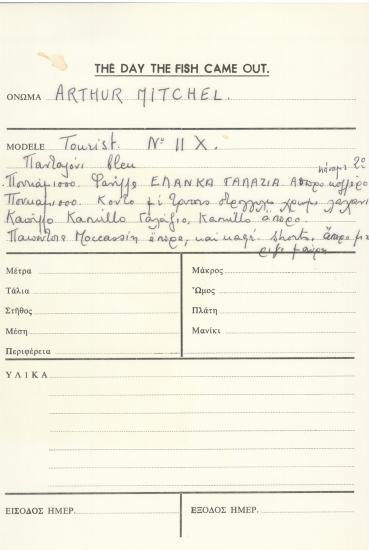 THE DAY THE FISH CAME OUT.
ΟΝΟΜΑ ARTHUR MITCHEL.
MODELE Tourist. Nº 11 X.
Πανταλόνι bleu
Πουκάμισο. Φανέλλα ΕΛΑΝΚΑ ΓΑΛΑΖΙΑ
Πουκάμισο. Κοντό μέ
Καπέλλο Γαλάζιο, Καπέλλο άσπρο.
Παπούτσια Moccassin άσπρα, καί καφέ. Shorts, άσπρο με
ρίγα μαύρη
Μέτρα
Μάκρος
Τάλια
Ὦμος
Στῆθος
Πλάτη
Μέση
Μανίκι
Περιφέρεια
ΥΛΙΚΑ
ΕΙΣΟΔΟΣ ΗΜΕΡ.
ΕΞΟΔΟΣ ΗΜΕΡ.